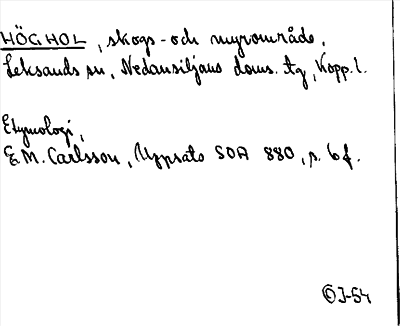 HÖGHOL, skogs- och myrområde,
Leksands sn, Nedansiljans doms. tg, Kopp. l.
Etymologi,
E.M. Carlsson, Uppsats SOA 880, s. 6 f.
ÖJ-54